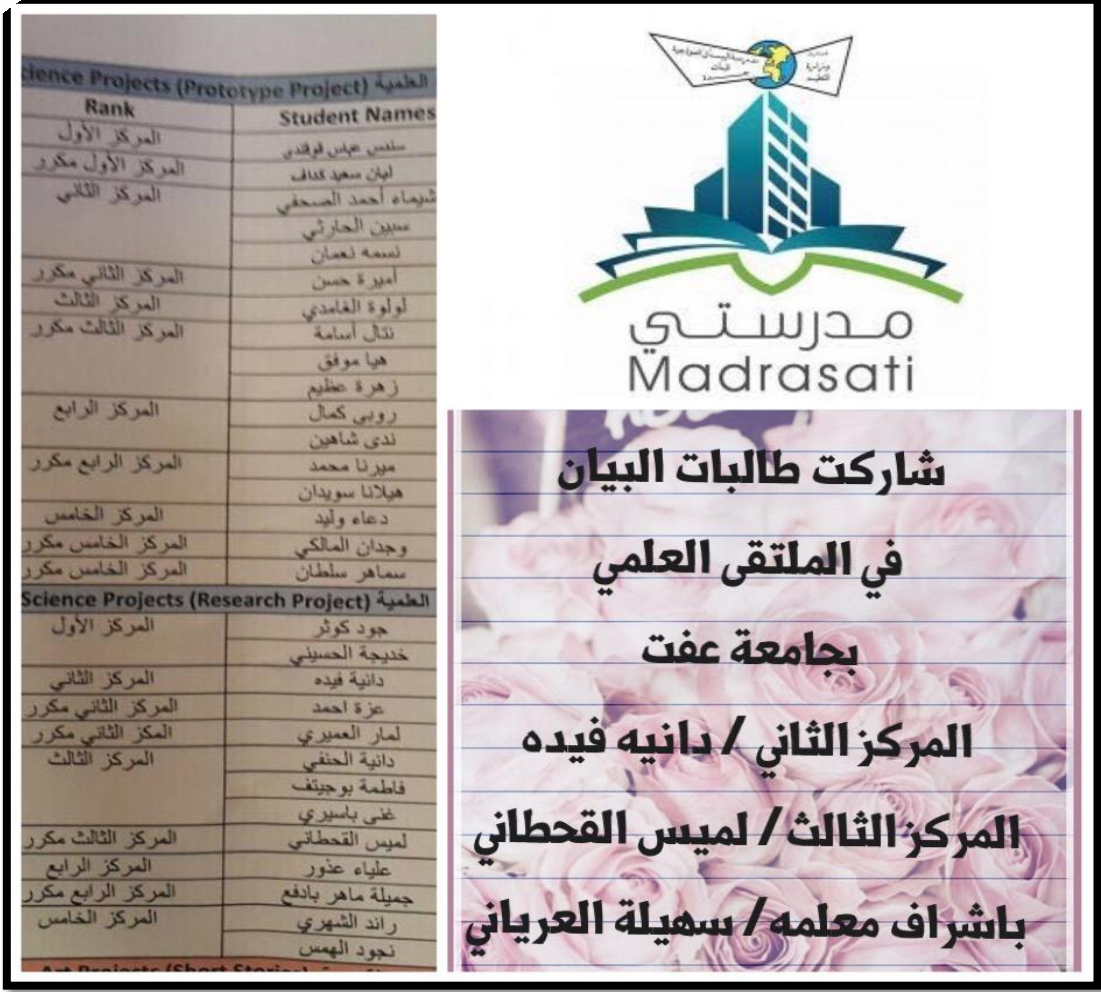 Science Projects (Prototype Project) العلمية
Rank Student Names
المركز الأول سندس عباس قوقندي
المركز الأول مكرر ليان سعيد كداف
المركز الثاني شيماء أحمد الصحفي
سبين الحارثي
نسمه نعمان
المركز الثاني مكرر أميرة حسن
المركز الثالث لولوة الغامدي
المركز الثالث مكرر نتال أسامة
هيا موفق
زهرة عظيم
المركز الرابع روبي كمال
ندى شاهين
المركز الرابع مكرر ميرنا محمد
هيلانا سويدان
المركز الخامس دعاء وليد
المركز الخامس مكرر وجدان المالكي
المركز الخامس مكرر سماهر سلطان
Science Projects (Research Project) العلمية
المركز الأول جود كوثر
خديجة الحسيني
المركز الثاني دانية فيده
المركز الثاني مكرر عزة احمد
المكز الثاني مكرر لمار العميري
المركز الثالث دانية الحنفي
فاطمة بوجيتف
غنى باسيري
المركز الثالث مكرر لميس القحطاني
المركز الرابع علياء عذور
المركز الرابع مكرر جميلة ماهر بادفع
المركز الخامس راند الشهري
نجود الهمس
Art Projects (Short Stories)
مدرستي
Madrasati
شاركت طالبات البيان
في الملتقى العلمي
بجامعة عفت
المركز الثاني / دانيه فيده
المركز الثالث/ لميس القحطاني
باشراف معلمه/ سهيلة العرياني